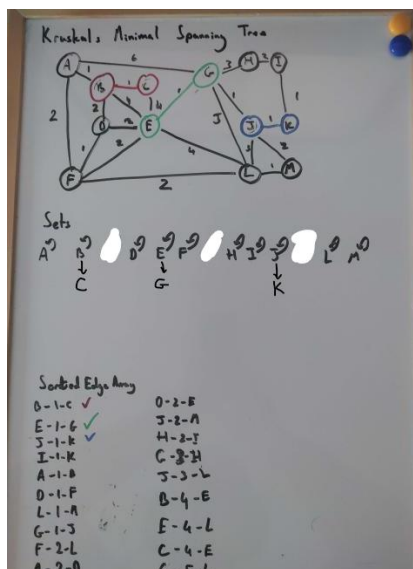 Kruskals Minimal Spanning Tree
A 6 G 3 H 2 I
1 B 1 C 1
2 2 4 4 1 1
D 2 E J 1 K
1 4 J 3 2
F 2 L 1 M
Sets
A B D E F H I J L M
C G K
Sorted Edge Array
B-1-C ✓
E-1-G ✓
J-1-K ✓
I-1-K
A-1-B
D-1-F
L-1-M
G-1-J
F-2-L
A-2-D
D-2-E
J-2-M
H-2-I
G-3-H
J-3-L
B-4-E
E-4-L
C-4-E
G-5-L